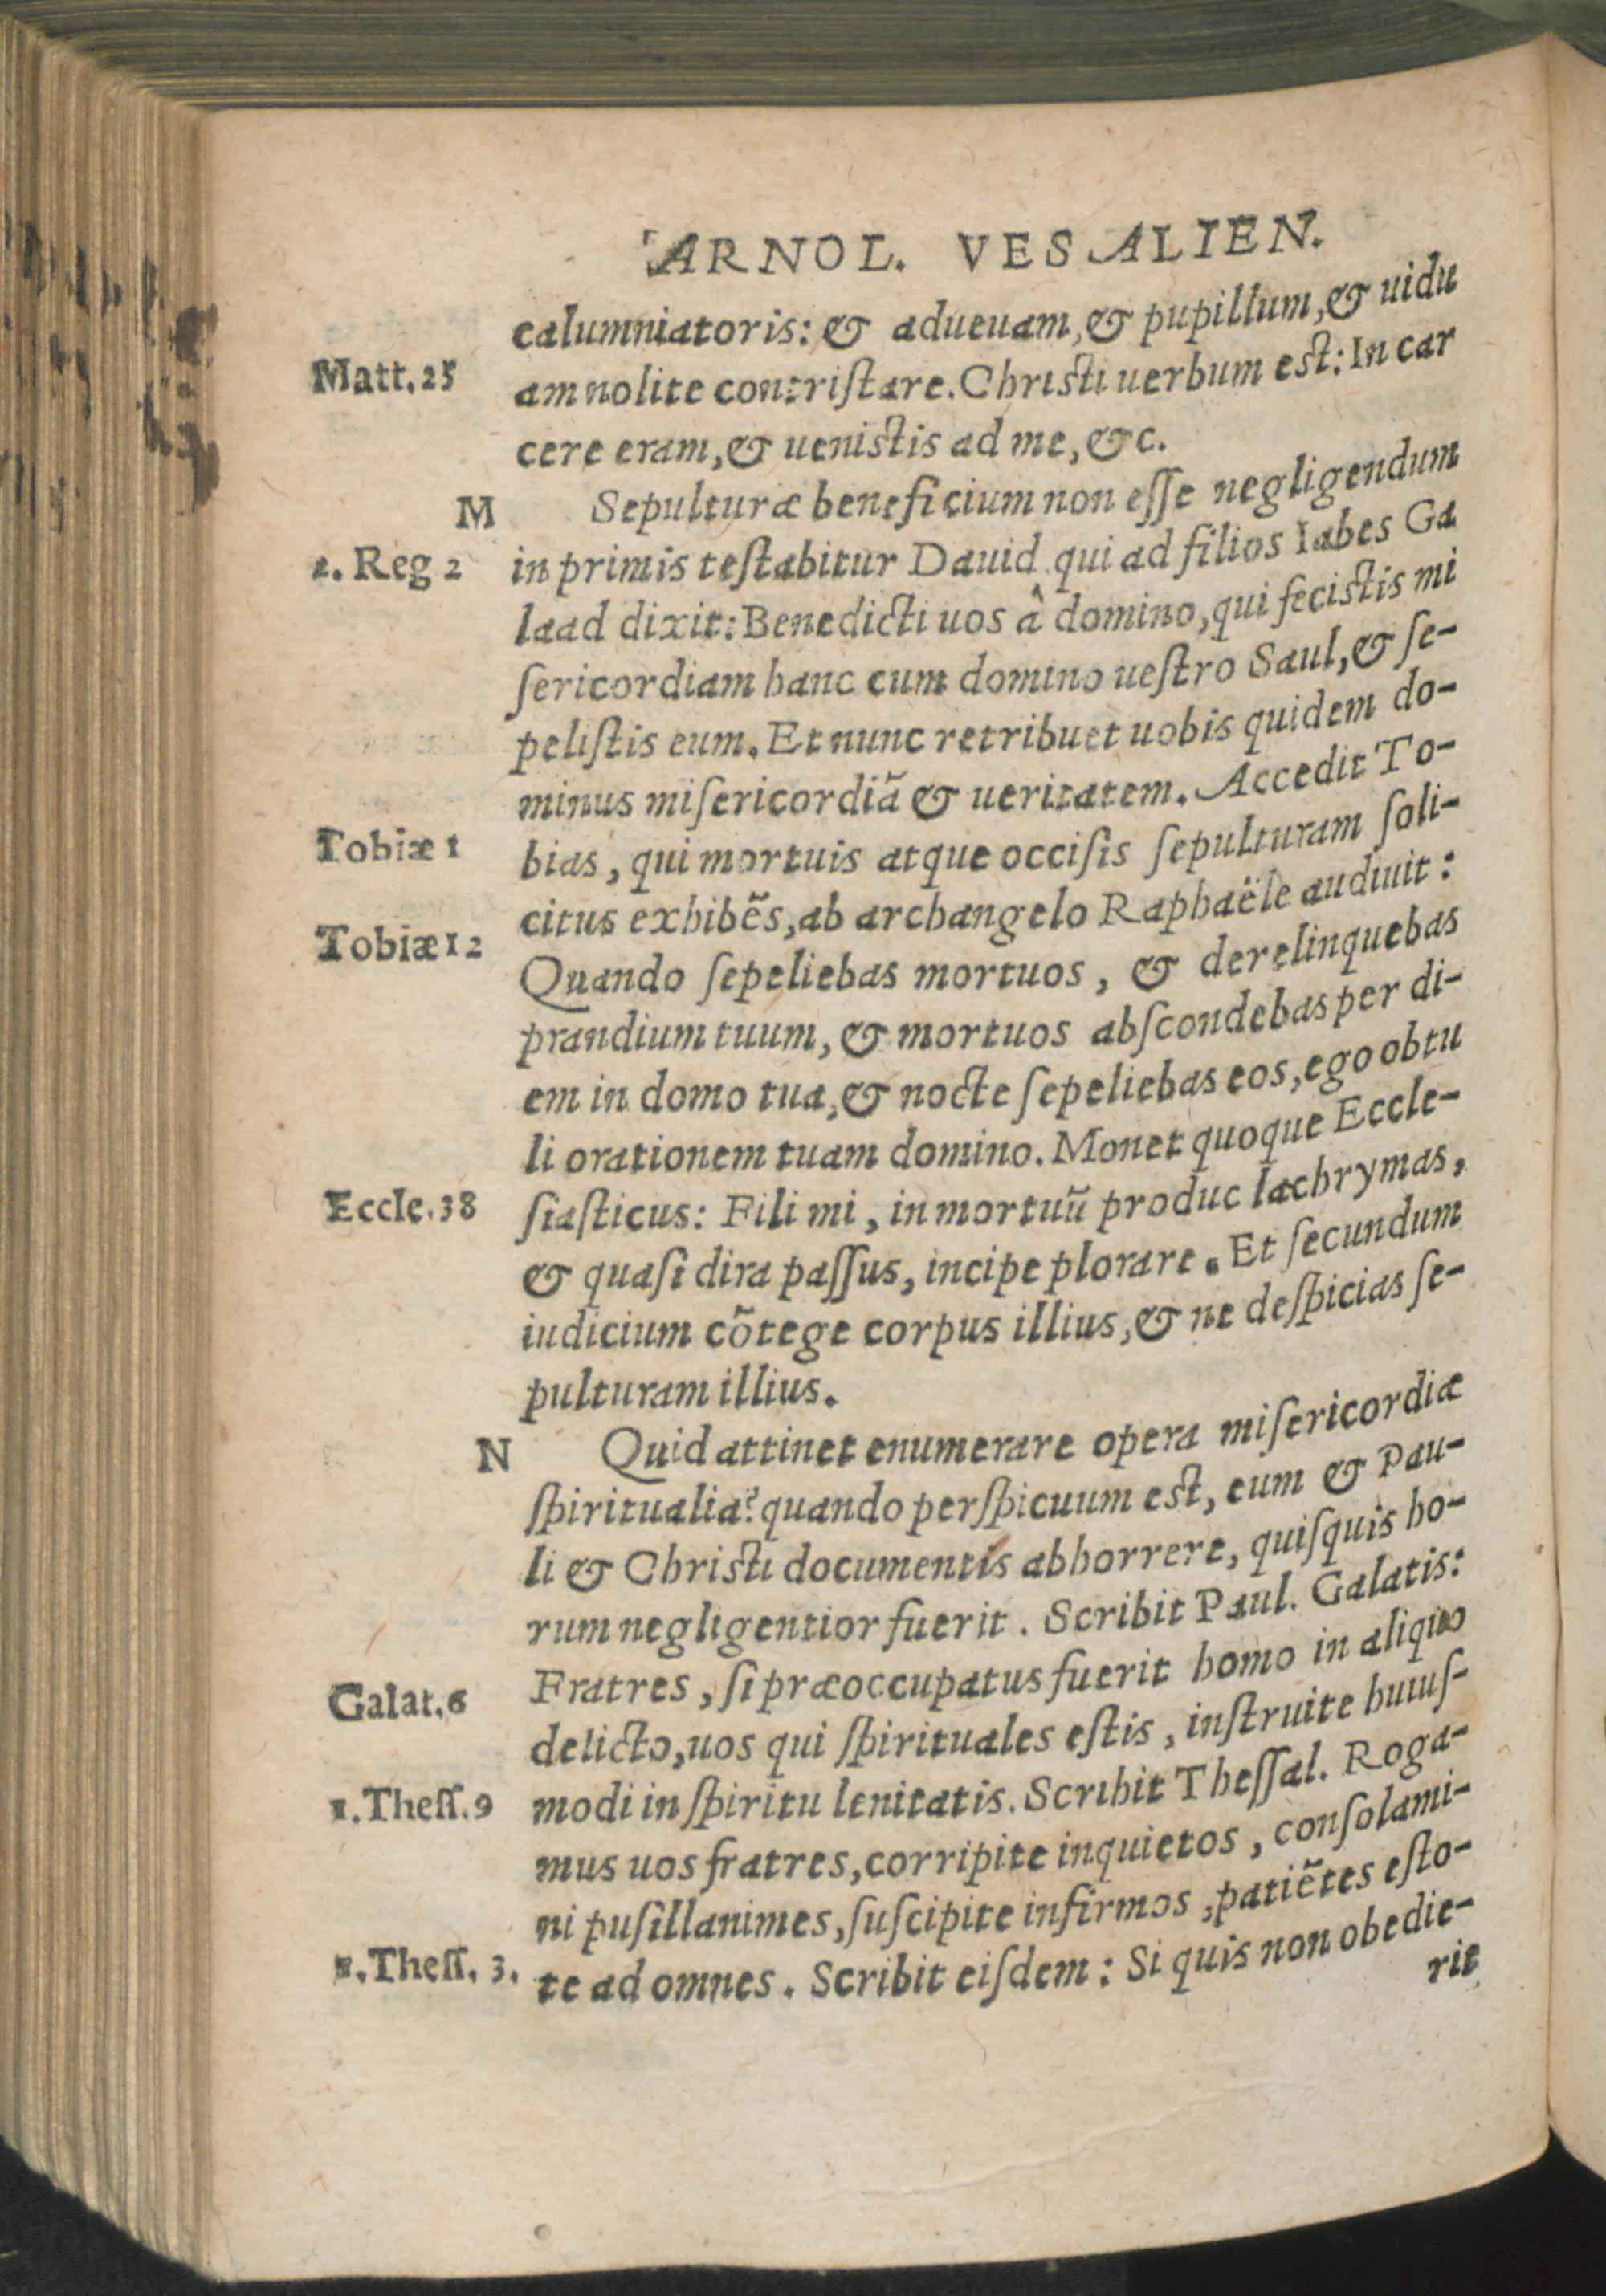 ARNOL. VESALIEN.
calumniatoris: & adueuam, & pupillum, & uidu
Matt. 25 am nolite contriſtare. Chriſti uerbum eſt: In car
cere eram, & ueniſtis ad me, &c.
M Sepulturæ beneficium non eſſe negligendum
2. Reg 2 in primis teſtabitur Dauid qui ad filios Iabes Ga
laad dixit: Benedicti uos â domino, qui feciſtis mi
ſericordiam hanc cum domino ueſtro Saul, & ſe-
peliſtis eum. Et nunc retribuet uobis quidem do-
minus miſericordiã & ueritatem. Accedit To-
Tobiæ 1 bias, qui mortuis atque occiſis ſepulturam ſoli-
citus exhibẽs, ab archangelo Raphaële audiuit:
Tobiæ 12 Quando ſepeliebas mortuos, & derelinquebas
prandium tuum, & mortuos abſcondebas per di-
em in domo tua, & nocte ſepeliebas eos, ego obtu
li orationem tuam domino. Monet quoque Eccle-
Eccle. 38 ſiaſticus: Fili mi, in mortuũ produc lachrymas,
& quaſi dira paſſus, incipe plorare. Et ſecundum
iudicium cõtege corpus illius, & ne deſpicias ſe-
pulturam illius.
N Quid attinet enumerare opera miſericordiæ
ſpiritualia? quando perſpicuum eſt, eum & Pau-
li & Chriſti documentis abhorrere, quiſquis ho-
rum negligentior fuerit. Scribit Paul. Galatis:
Galat. 6 Fratres, ſi præoccupatus fuerit homo in aliquo
delicto, uos qui ſpirituales eſtis, inſtruite huiuſ-
1. Theſſ. 9 modi in ſpiritu lenitatis. Scribit Theſſal. Roga-
mus uos fratres, corripite inquietos, conſolami-
ni puſillanimes, ſuſcipite infirmos, patiẽtes eſto-
Theſſ. 3. te ad omnes. Scribit eiſdem: Si quis non obedie-
rit